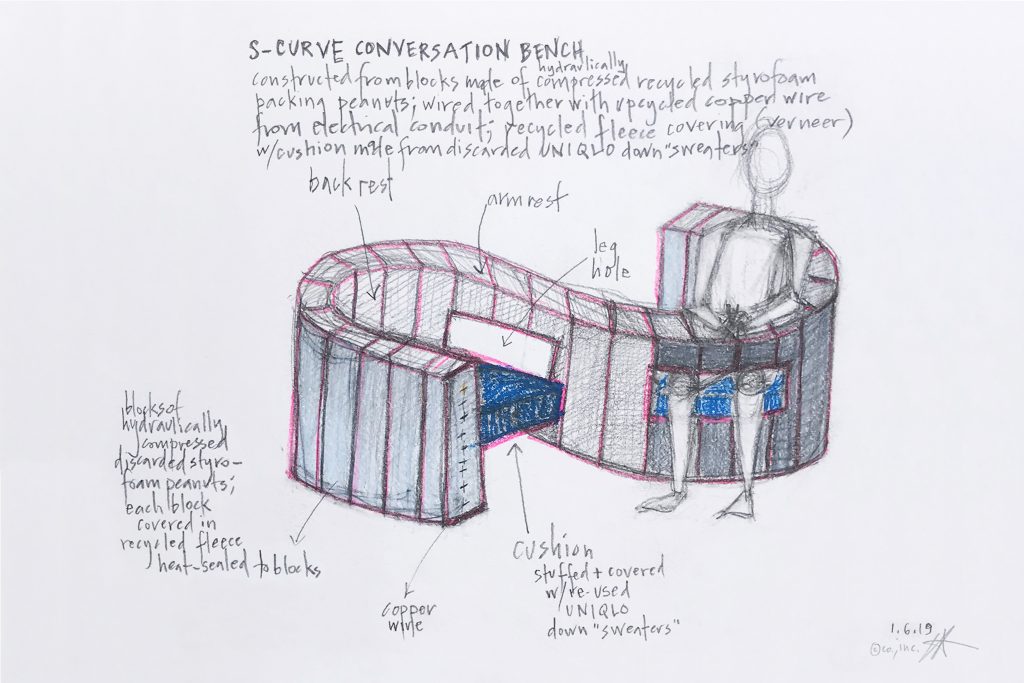 S-CURVE CONVERSATION BENCH
constructed from blocks made of hydraulically compressed recycled styrofoam
packing peanuts; wired together with upcycled copper wire
from electrical conduit; recycled fleece covering (verneer)
w/cushion made from discarded UNIQLO down "sweaters"
back rest
arm rest
leg
hole
blocks of
hydraulically
compressed
discarded styro-
foam peanuts;
each block
covered in
recycled fleece
heat-sealed to blocks
copper
wire
cushion
stuffed + covered
w/re-used
UNIQLO
down "sweaters"
1.6.19
©co., inc.